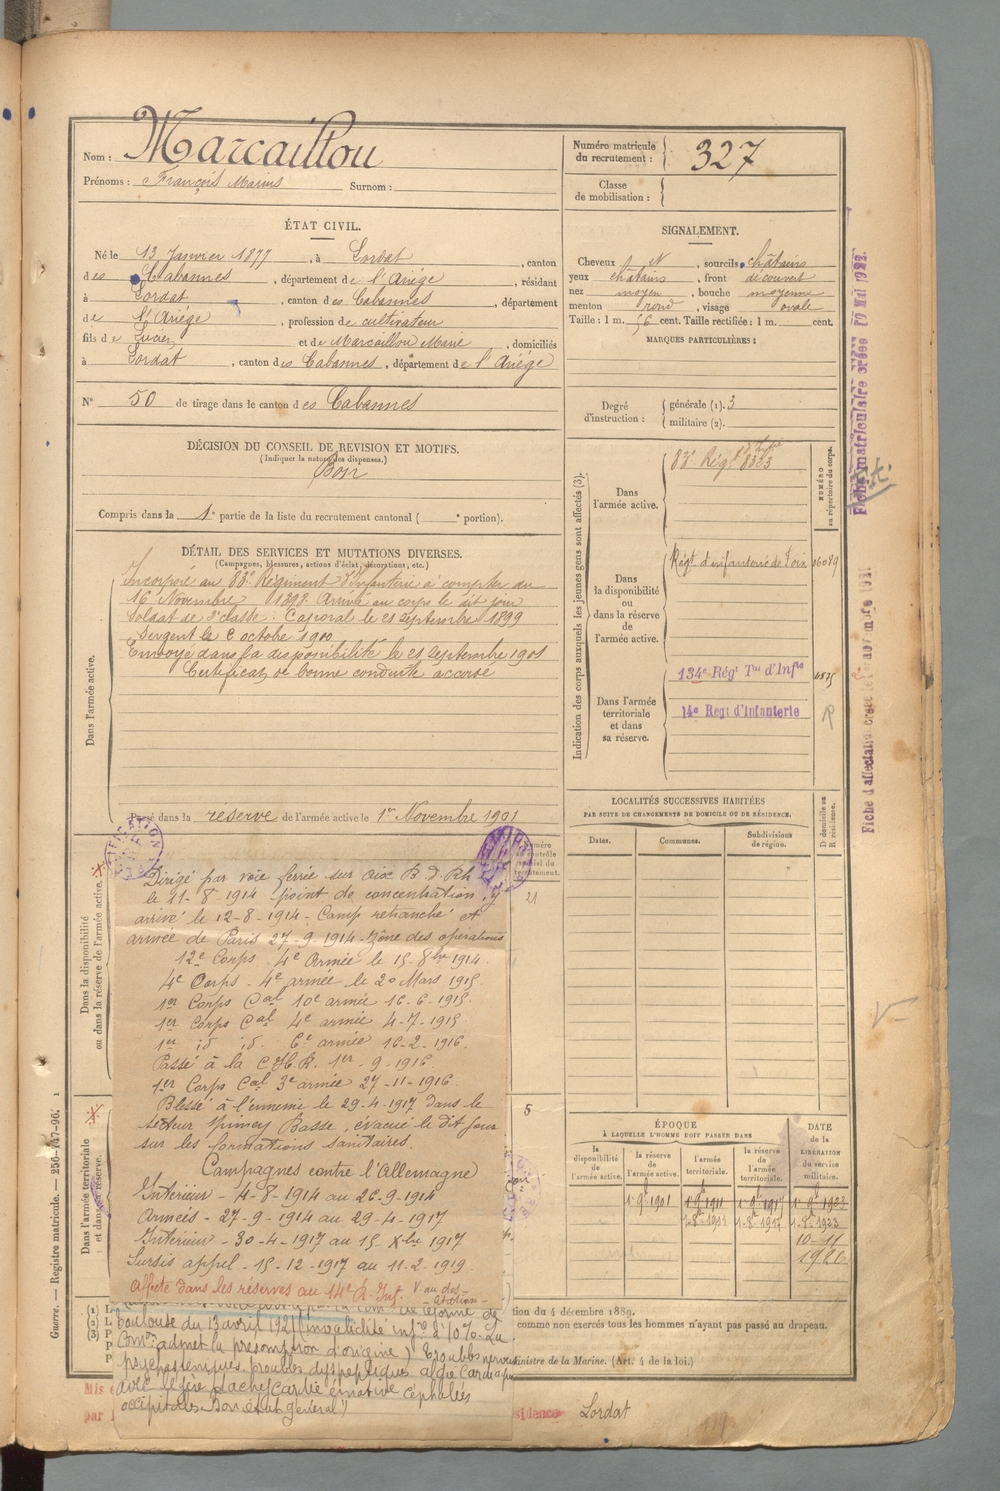 Nom : Marcaillou
Prénoms : François Marius Surnom :
Numéro matricule du recrutement : 327
Classe de mobilisation :
ÉTAT CIVIL.
Né le 13 Janvier 1877, à Lordat, canton
des Cabannes, département de l'Ariége, résidant
à Lordat, canton des Cabannes, département
de l'Ariége, profession de cultivateur
fils de et de Marcaillou Marie, domiciliés
à Lordat, canton des Cabannes, département de l'Ariége
N° 50 de tirage dans le canton des Cabannes
DÉCISION DU CONSEIL DE REVISION ET MOTIFS.
(Indiquer la nature des dispenses.)
Bon
Compris dans la 1e partie de la liste du recrutement cantonal ( e portion).
SIGNALEMENT.
Cheveux N, sourcils châtains
yeux châtains, front découvert
nez moyen, bouche moyenne
menton rond, visage ovale
Taille : 1 m. 56 cent. Taille rectifiée : 1 m. cent.
MARQUES PARTICULIÈRES :
Degré d'instruction : générale (1). 3
militaire (2).
DÉTAIL DES SERVICES ET MUTATIONS DIVERSES.
(Campagnes, blessures, actions d'éclat, décorations, etc.)
Dans l'armée active.
Incorporé au 83e Régiment d'Infanterie à compter du
16 Novembre 1898. Arrivé au corps le dit jour
Soldat de 2e classe. Caporal le 21 septembre 1899
Sergent le 6 octobre 1900
Envoyé dans la disponibilité le 21 septembre 1901
Certificat de bonne conduite accordé
Passé dans la réserve de l'armée active le 1er Novembre 1901
Indication des corps auxquels les jeunes gens sont affectés (3).
NUMÉRO au répertoire du corps.
Dans l'armée active.
83e Régt
Dans la disponibilité ou dans la réserve de l'armée active.
Régt d'infanterie de Foix
Dans l'armée territoriale et dans sa réserve.
134e Régt Tal d'Infie
14e Regt d'Infanterie
LOCALITÉS SUCCESSIVES HABITÉES
PAR SUITE DE CHANGEMENTS DE DOMICILE OU DE RÉSIDENCE.
Dates. Communes. Subdivisions de région. D domicile ou R résidence.
Dans la disponibilité ou dans la réserve de l'armée active.
Dans l'armée territoriale et dans sa réserve.
21
5
Dirigé par voie ferrée sur Aix B. D. Rh
le 11-8-1914 point de concentration y
arrivé le 12-8-1914 - Camp retranché et
armée de Paris 27-9-1914 - Zône des opérations
12e Corps 4e Armée le 15-8bre 1914
4e Corps - 4e armée le 20 Mars 1915
1er Corps Cal 10e armée 16-6-1915
1er Corps Cal 4e armée 4-7-1915
1er id id 6e armée 16-2-1916
Passé à la C.H.R. 1er-9-1916
1er Corps Cal 3e armée 27-11-1916
Blessé à l'ennemi le 29-4-1917 dans le
secteur Basse, évacué le dit jour
sur les formations sanitaires.
Campagnes contre l'Allemagne
Intérieur - 4-8-1914 au 26-9-1914
Armées - 27-9-1914 au 29-4-1917
Intérieur - 30-4-1917 au 15-Xbre 1917
Sursis appel - 15-12-1917 au 11-2-1919
Affecté dans les réserves au 14e R. Inf.
Toulouse du 13 avril 1921 (invalidité infre à 10% La
Comon admet la présomption d'origine) Troubles nerveux
psychasteniques, troubles dyspeptiques, algie cardiaque
avec légère tachycardie émotive céphalées
occipitales. Bon état général)
ÉPOQUE
À LAQUELLE L'HOMME DOIT PASSER DANS
la disponibilité de l'armée active. la réserve de l'armée active. l'armée territoriale. la réserve de l'armée territoriale.
DATE de la LIBÉRATION du service militaire.
1er 9bre 1901 1er 9bre 1911 1er 9bre 1917 1er 9bre 1923
tion du 4 décembre 1889.
comme non exercés tous les hommes n'ayant pas passé au drapeau.
Ministre de la Marine. (Art. 4 de la loi.)
Lordat
Guerre. — Registre matricule. — 256-747-96.
Fiche matriculaire créée